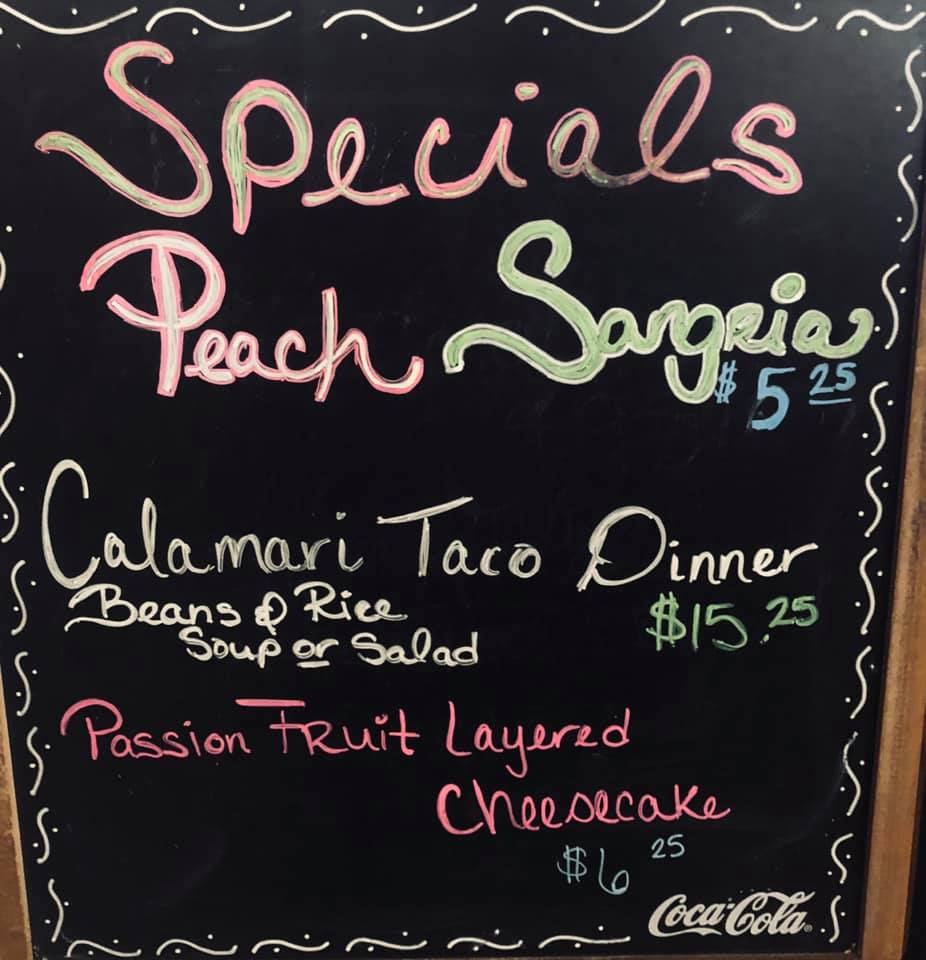 Specials
Peach Sangria
$5 25
Calamari Taco Dinner
Beans & Rice
Soup or Salad
$15.25
Passion Fruit Layered
Cheesecake
$6 25
Coca-Cola